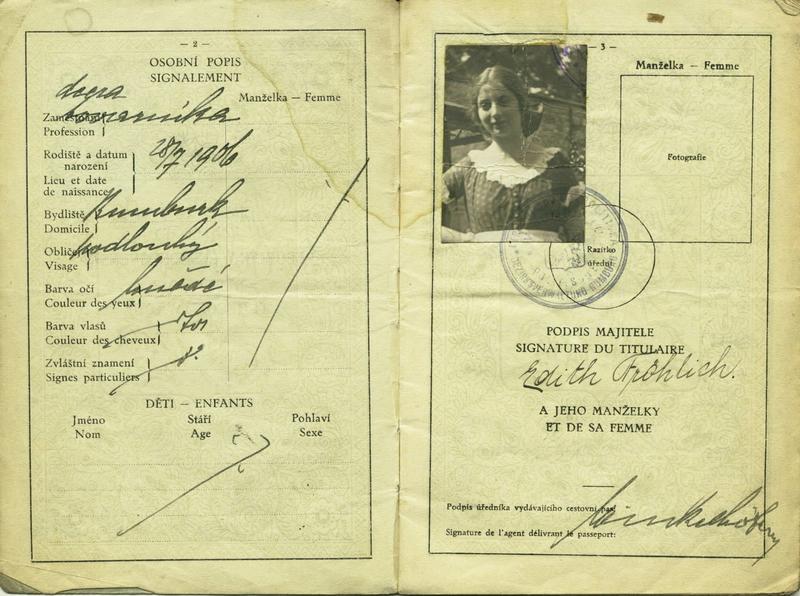 — 2 —
OSOBNÍ POPIS
SIGNALEMENT
Manželka — Femme
dcera
Zaměstnání
Profession
továrníka
Rodiště a datum
narození
28/7 1906
Lieu et date
de naissance
Bydliště
Domicile
Rumburk
Obličej
Visage
podlouhlý
Barva očí
Couleur des yeux
hnědé
Barva vlasů
Couleur des cheveux
Zvláštní znamení
Signes particuliers
DĚTI — ENFANTS
Jméno Stáří Pohlaví
Nom Age Sexe
— 3 —
Manželka — Femme
Fotografie
Razítko
úřední
PODPIS MAJITELE
SIGNATURE DU TITULAIRE
Edith Fröhlich.
A JEHO MANŽELKY
ET DE SA FEMME
Podpis úředníka vydávajícího cestovní pas:
Signature de l'agent délivrant le passeport: